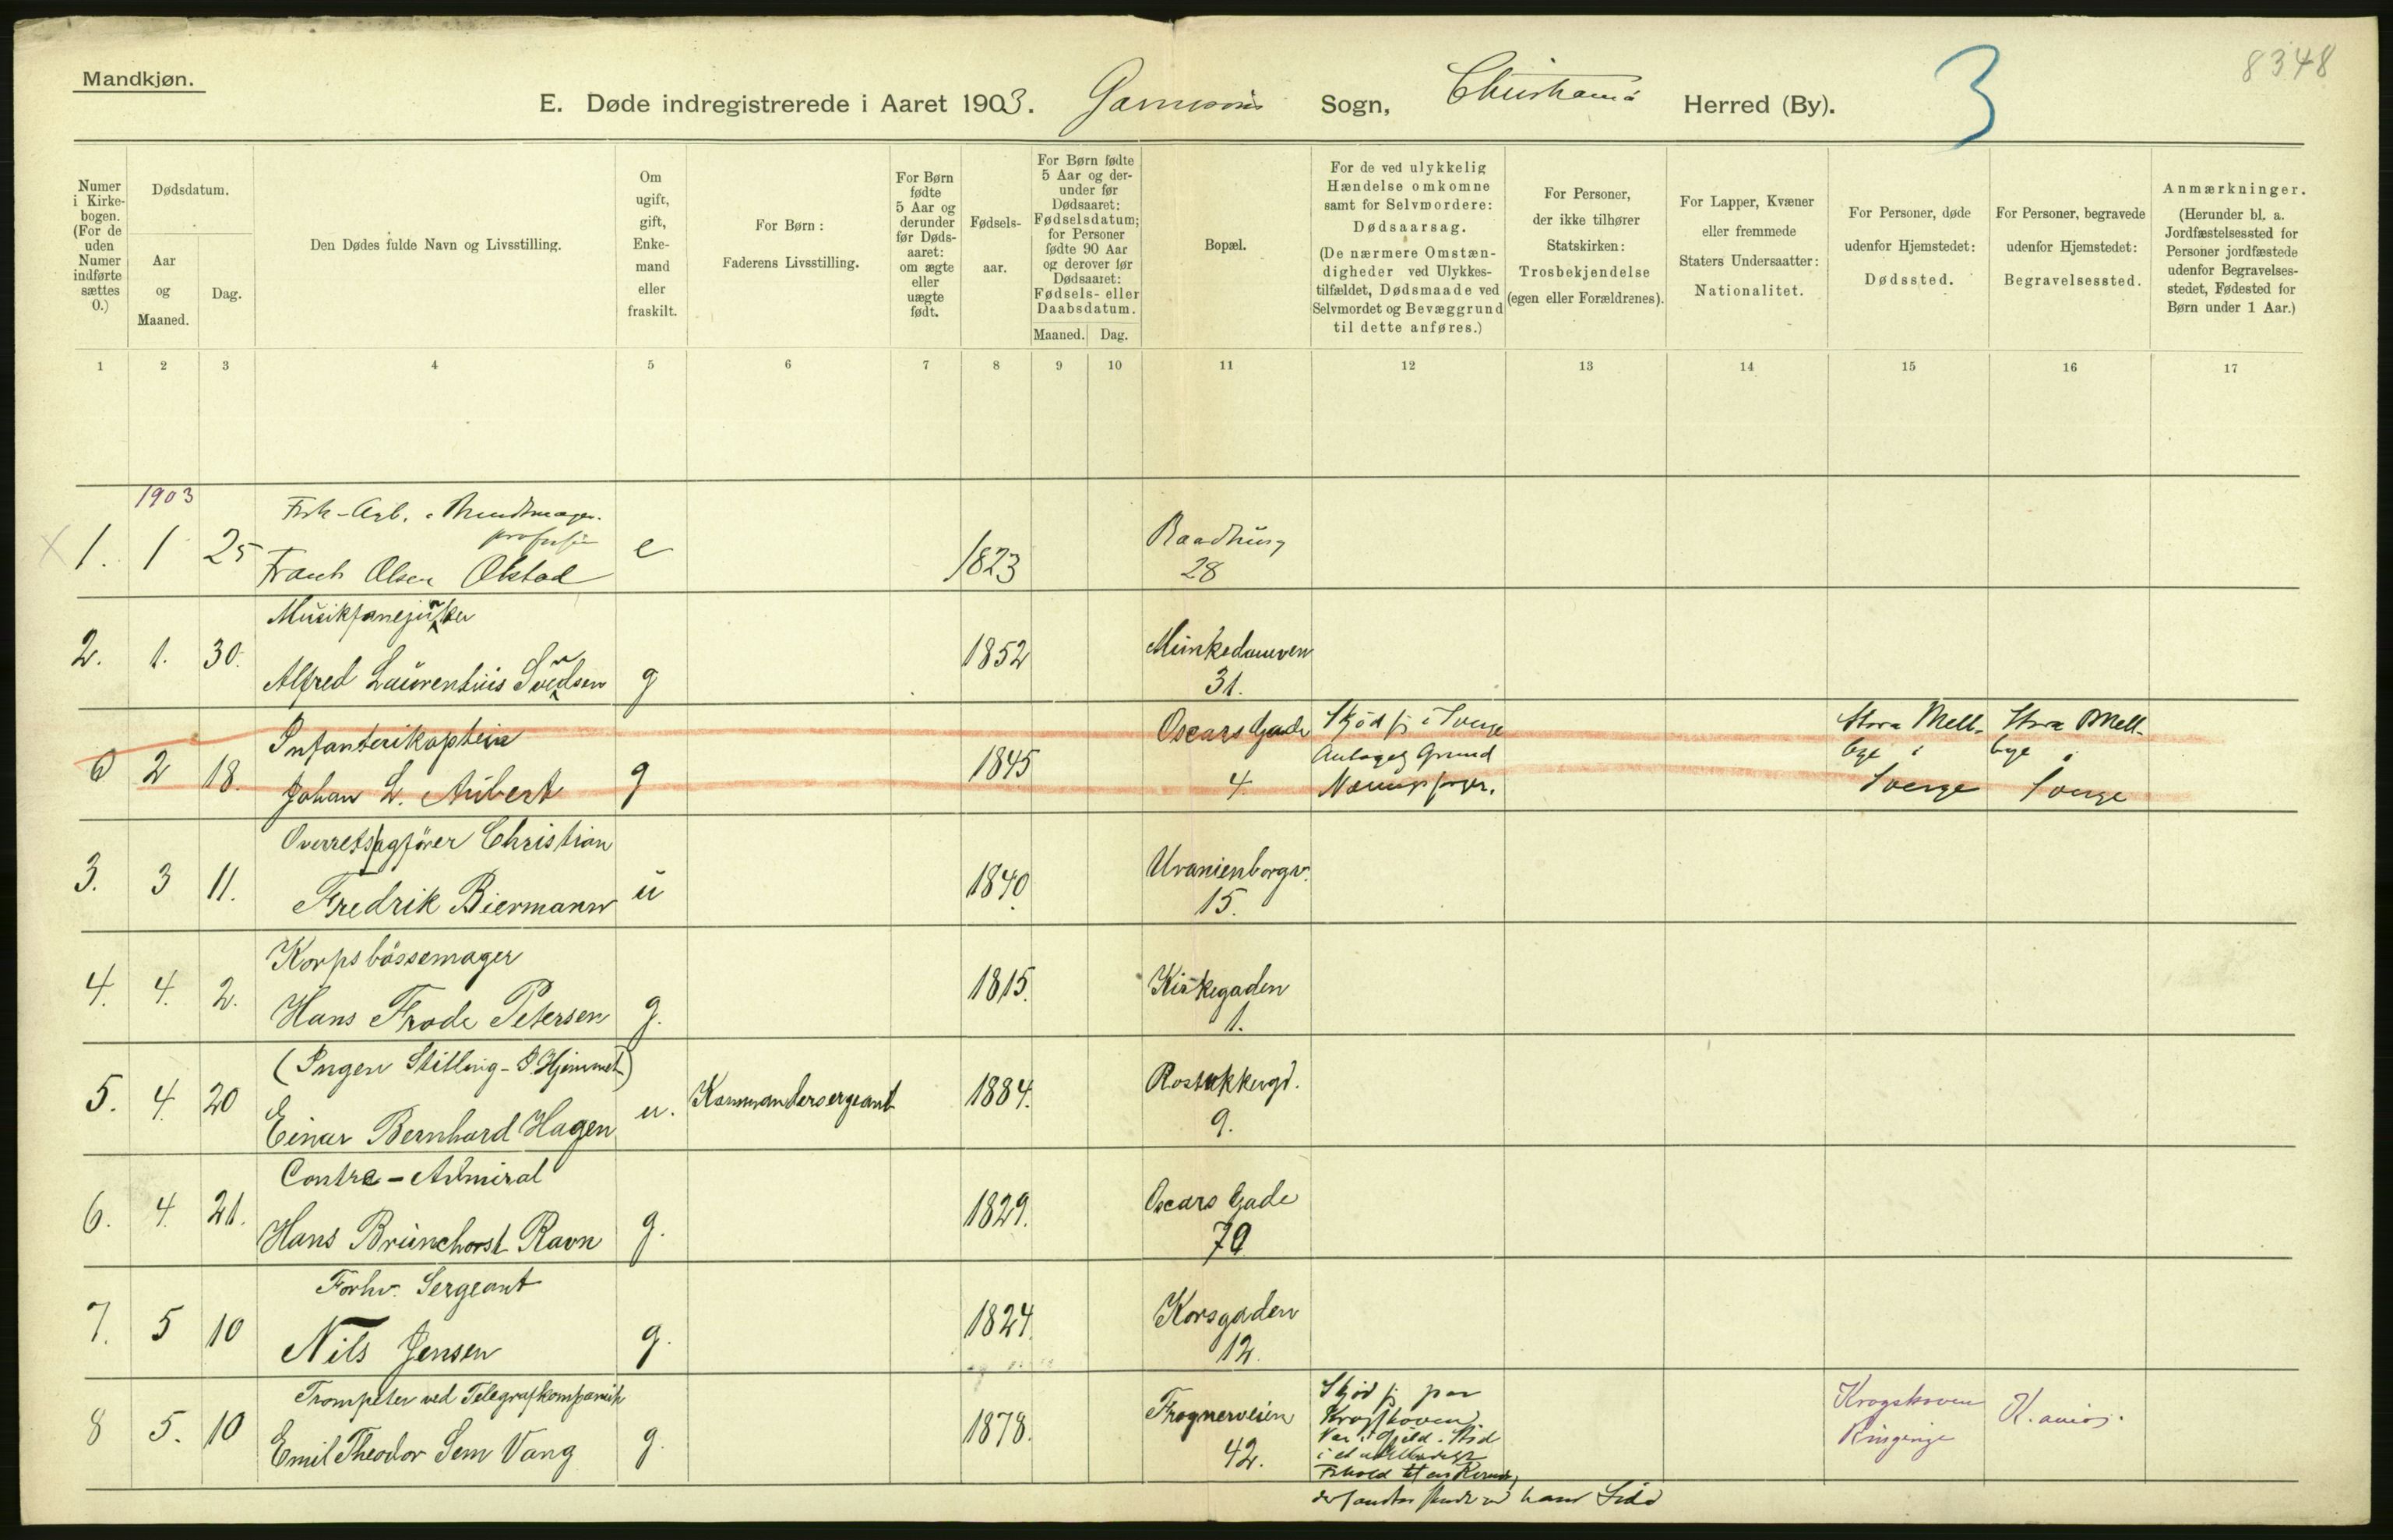 8348
Mandkjøn.
E. Døde indregistrerede i Aaret 1903. Garnisons Sogn, Christiania Herred (By). 3
Numer i Kirke-bogen. (For de uden Numer indførte sættes 0.)
Dødsdatum.
Aar og Maaned.
Dag.
Den Dødes fulde Navn og Livsstilling.
Om ugift, gift, Enke-mand eller fraskilt.
For Børn: Faderens Livsstilling.
For Børn fødte 5 Aar og derunder før Døds-aaret: om ægte eller uægte født.
Fødsels-aar.
For Børn fødte 5 Aar og der-under før Dødsaaret: Fødselsdatum; for Personer fødte 90 Aar og derover før Dødsaaret: Fødsels- eller Daabsdatum.
Maaned. Dag.
Bopæl.
For de ved ulykkelig Hændelse omkomne samt for Selvmordere: Dødsaarsag. (De nærmere Omstæn-digheder ved Ulykkes-tilfældet, Dødsmaade ved Selvmordet og Bevæggrund til dette anføres.)
For Personer, der ikke tilhører Statskirken: Trosbekjendelse (egen eller Forældrenes).
For Lapper, Kvæner eller fremmede Staters Undersaatter: Nationalitet.
For Personer, døde udenfor Hjemstedet: Dødssted.
For Personer, begravede udenfor Hjemstedet: Begravelsessted.
Anmærkninger. (Herunder bl. a. Jordfæstelsessted for Personer jordfæstede udenfor Begravelses-stedet, Fødested for Børn under 1 Aar.)
1 2 3 4 5 6 7 8 9 10 11 12 13 14 15 16 17
1903
X 1. 1 25
Olsen Olstad e 1823 Raadhusg 28
Musikfanejunker
2. 1. 30. Alfred Laurentius Svendsen g 1852 Munkedamven 31.
Infanterikaptein
0 2 18. Johan L. Aubert g 1845 Oscars Gade 4.
Skjød sig i Sverge
Antagelig Grund
Stora Mell-
bye i
Sverge
Stora Mell-
bye i
Sverge
Overretssagfører Christian
3. 3 11. Fredrik Biermann u 1840. Uranienborgv. 15.
Korpsbøssemager
4. 4. 2. Hans Frode Petersen g. 1815. Kirkegaden 1.
(Ingen Stilling - I Hjemmet)
5. 4. 20 Einar Bernhard Hagen u. Kommandersergeant 1884. Rostokkergd. 9.
Contra-Admiral
6. 4. 21. Hans Brunchorst Ravn g. 1829. Oscars Gade 70
Forhv. Sergeant
7. 5 10 Nils Jensen g. 1824. Korsgaden 12.
Trompeter ved Telegrafkompaniet
8 5. 10 Emil Theodor Sem Vang g. 1878. Frognerveien 42.
Skjød sig paa
Krogskoven.
Var i Gjæld. Stod
i et
Forhold til en
hans Side
Krogskoven
Ringerige
K.ania